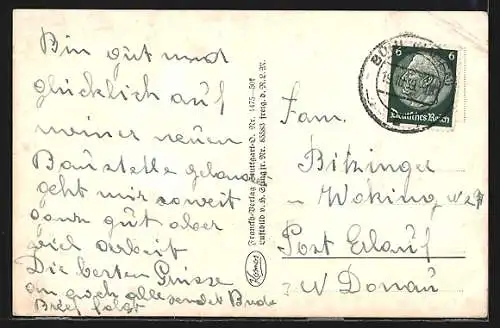 Bin gut und
glücklich auf
meiner neuen
Baustelle gelandet
geht mir soweit
ganz gut aber
viel arbeit
Die besten Grüsse
an euch alle sendet Bude
Brief folgt
Franckh-Verlag Stuttgart-O. Nr. 1475-501
Luftbild v. H. Spang fr. Nr. 65583 freig. d. R.L.M.
Kosmos
6 6
Deutsches Reich
Fam.
Bitzinger
in Woking
Post Erlauf
N Donau